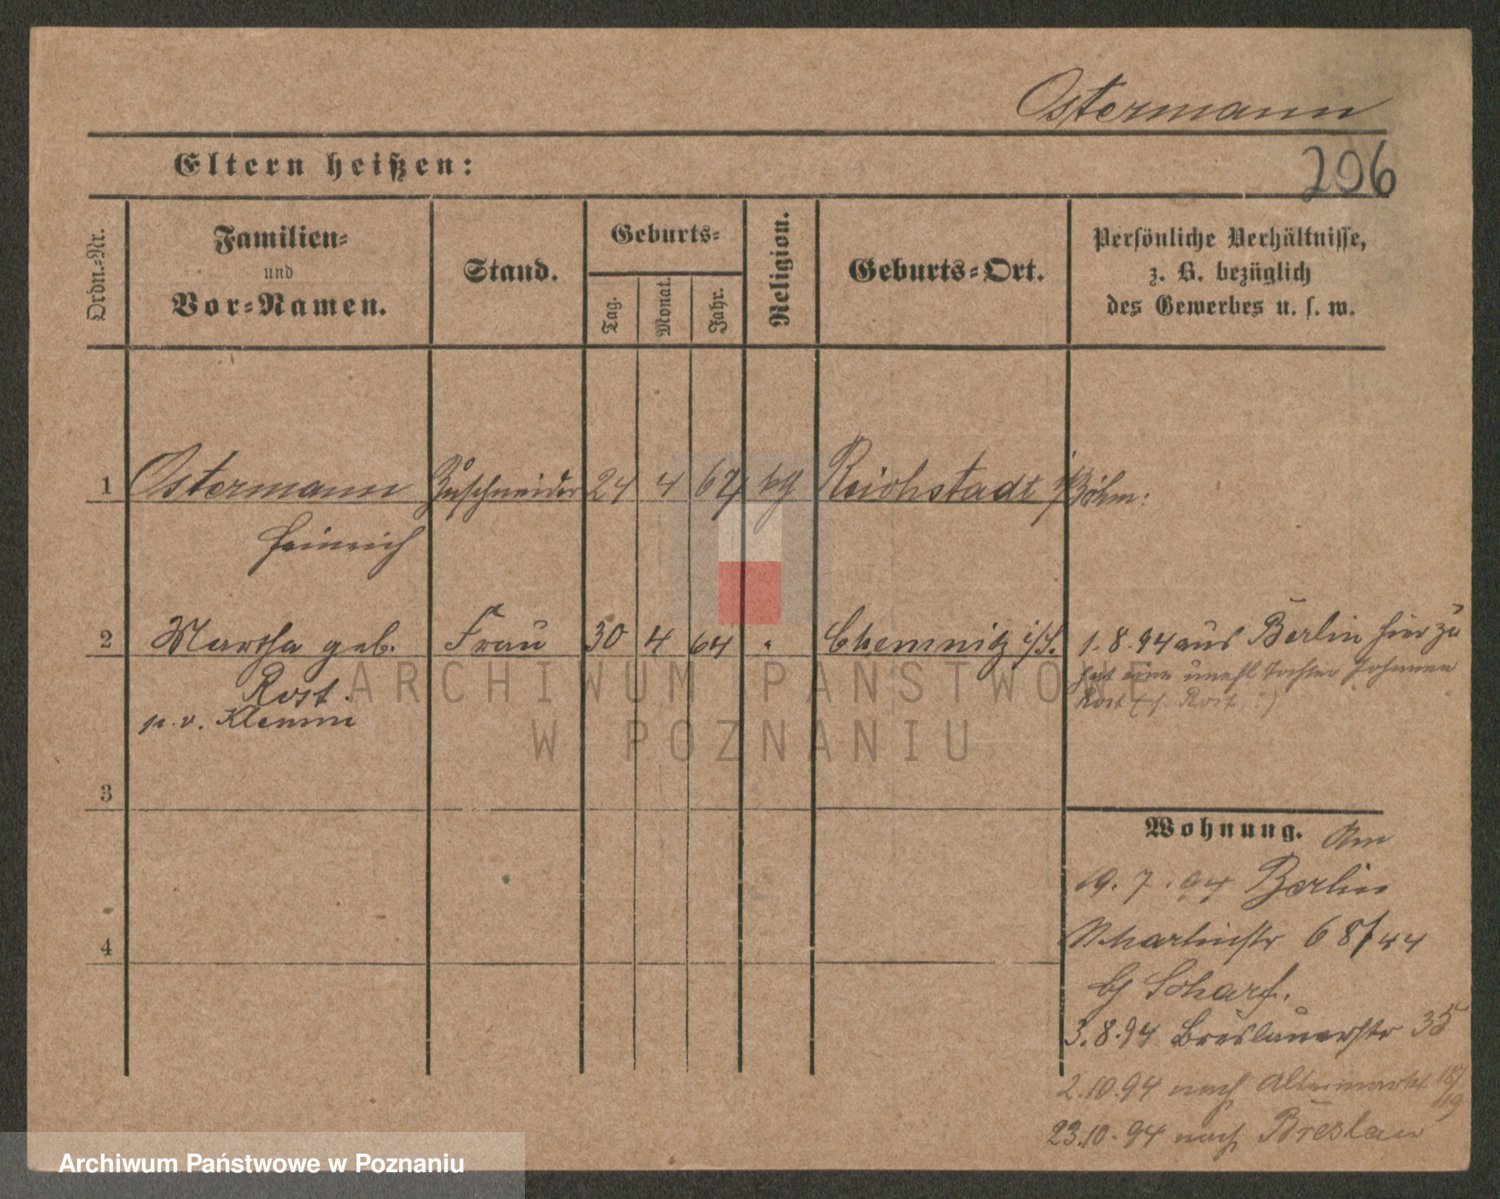 Ostermann
Eltern heißen:
206
Ordn.-Nr.
Familien-
und
Vor-Namen.
Stand.
Geburts-
Tag.
Monat.
Jahr.
Religion.
Geburts-Ort.
Persönliche Verhältnisse,
z. B. bezüglich
des Gewerbes u. s. w.
1 Ostermann Zuschneider 24 4 67 Reichstadt i/Böhm:
Heinrich
2 Martha geb. Frau 30 4 64 " Chemnitz i/S. 1.8.94 aus Berlin hier zu
Rost. hat eine unehl Tochter Johanna
p. v. Klemm Rost (s. Rost :)
3
Wohnung. Am
19.7.94 Berlin
4 68/44
bei Scharf.
3.8.94 Breslauerstr 35
2.10.94 nach Altenmarkt 18/19
23.10.94 nach Breslau
ARCHIWUM PAŃSTWOWE
W POZNANIU
Archiwum Państwowe w Poznaniu